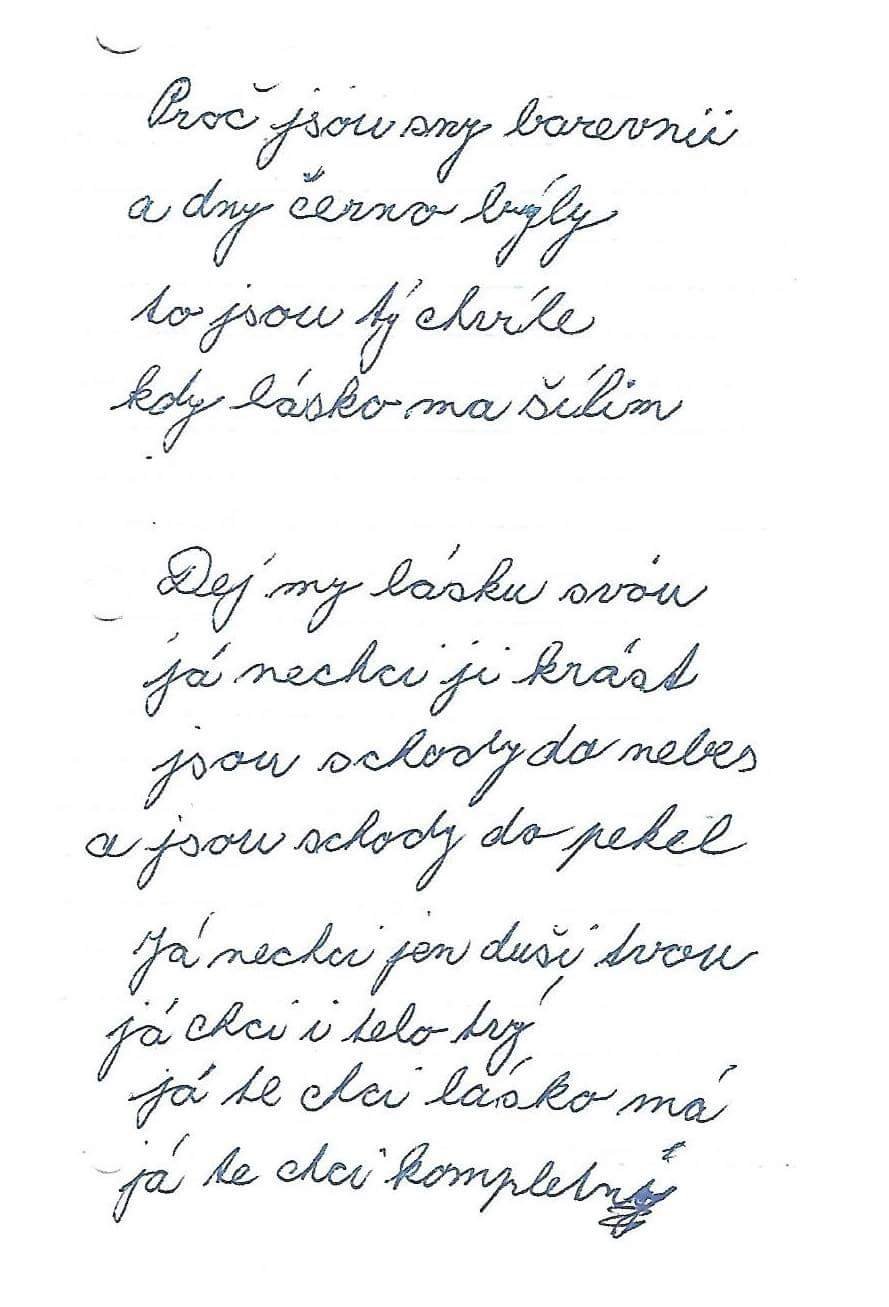 Proč jsou sny barevnii
a dny černo býly
to jsou tý chvíle
kdy lásko ma šílim
Dej my lásku svóu
já nechci ji krást
jsou schody do nebes
a jsou schody do pekel
Já nechci jen duší tvou
já chci i telo tvý
já te chci lásko má
já te chci